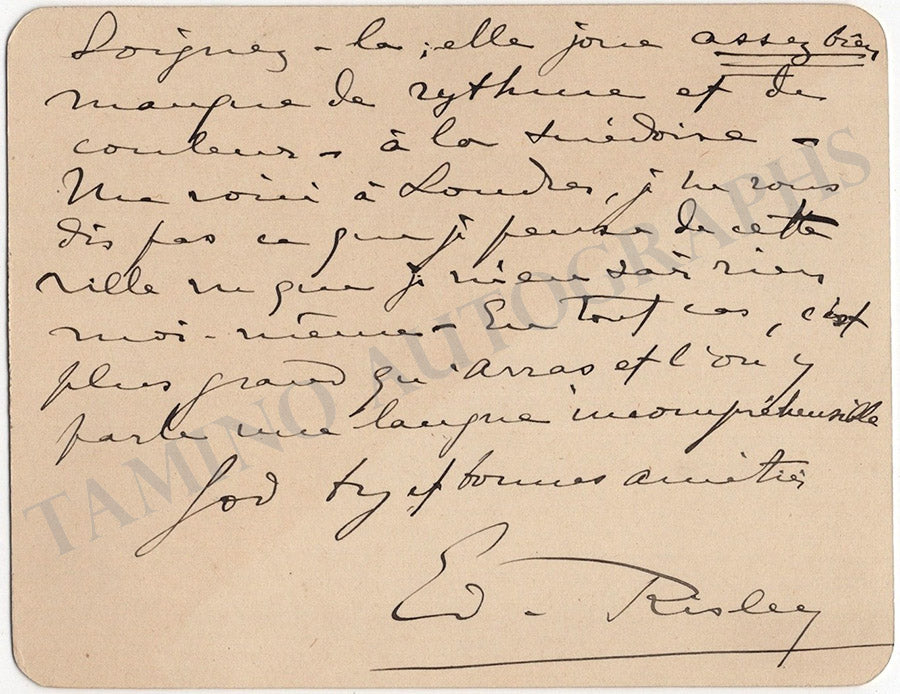 Soignez-la ; elle joue assez bien
manque de rythme et de
couleur - à la suédoise -
Me voici à Londres, je ne vous
dis pas ce que je pense de cette
ville vu que je n'en sais rien
moi-même - En tout cas, c'est
plus grand qu'Arras et l'on y
parle une langue incompréhensible
God try et bonnes amitiés
Ed. Risley
TAMINO AUTOGRAPHS